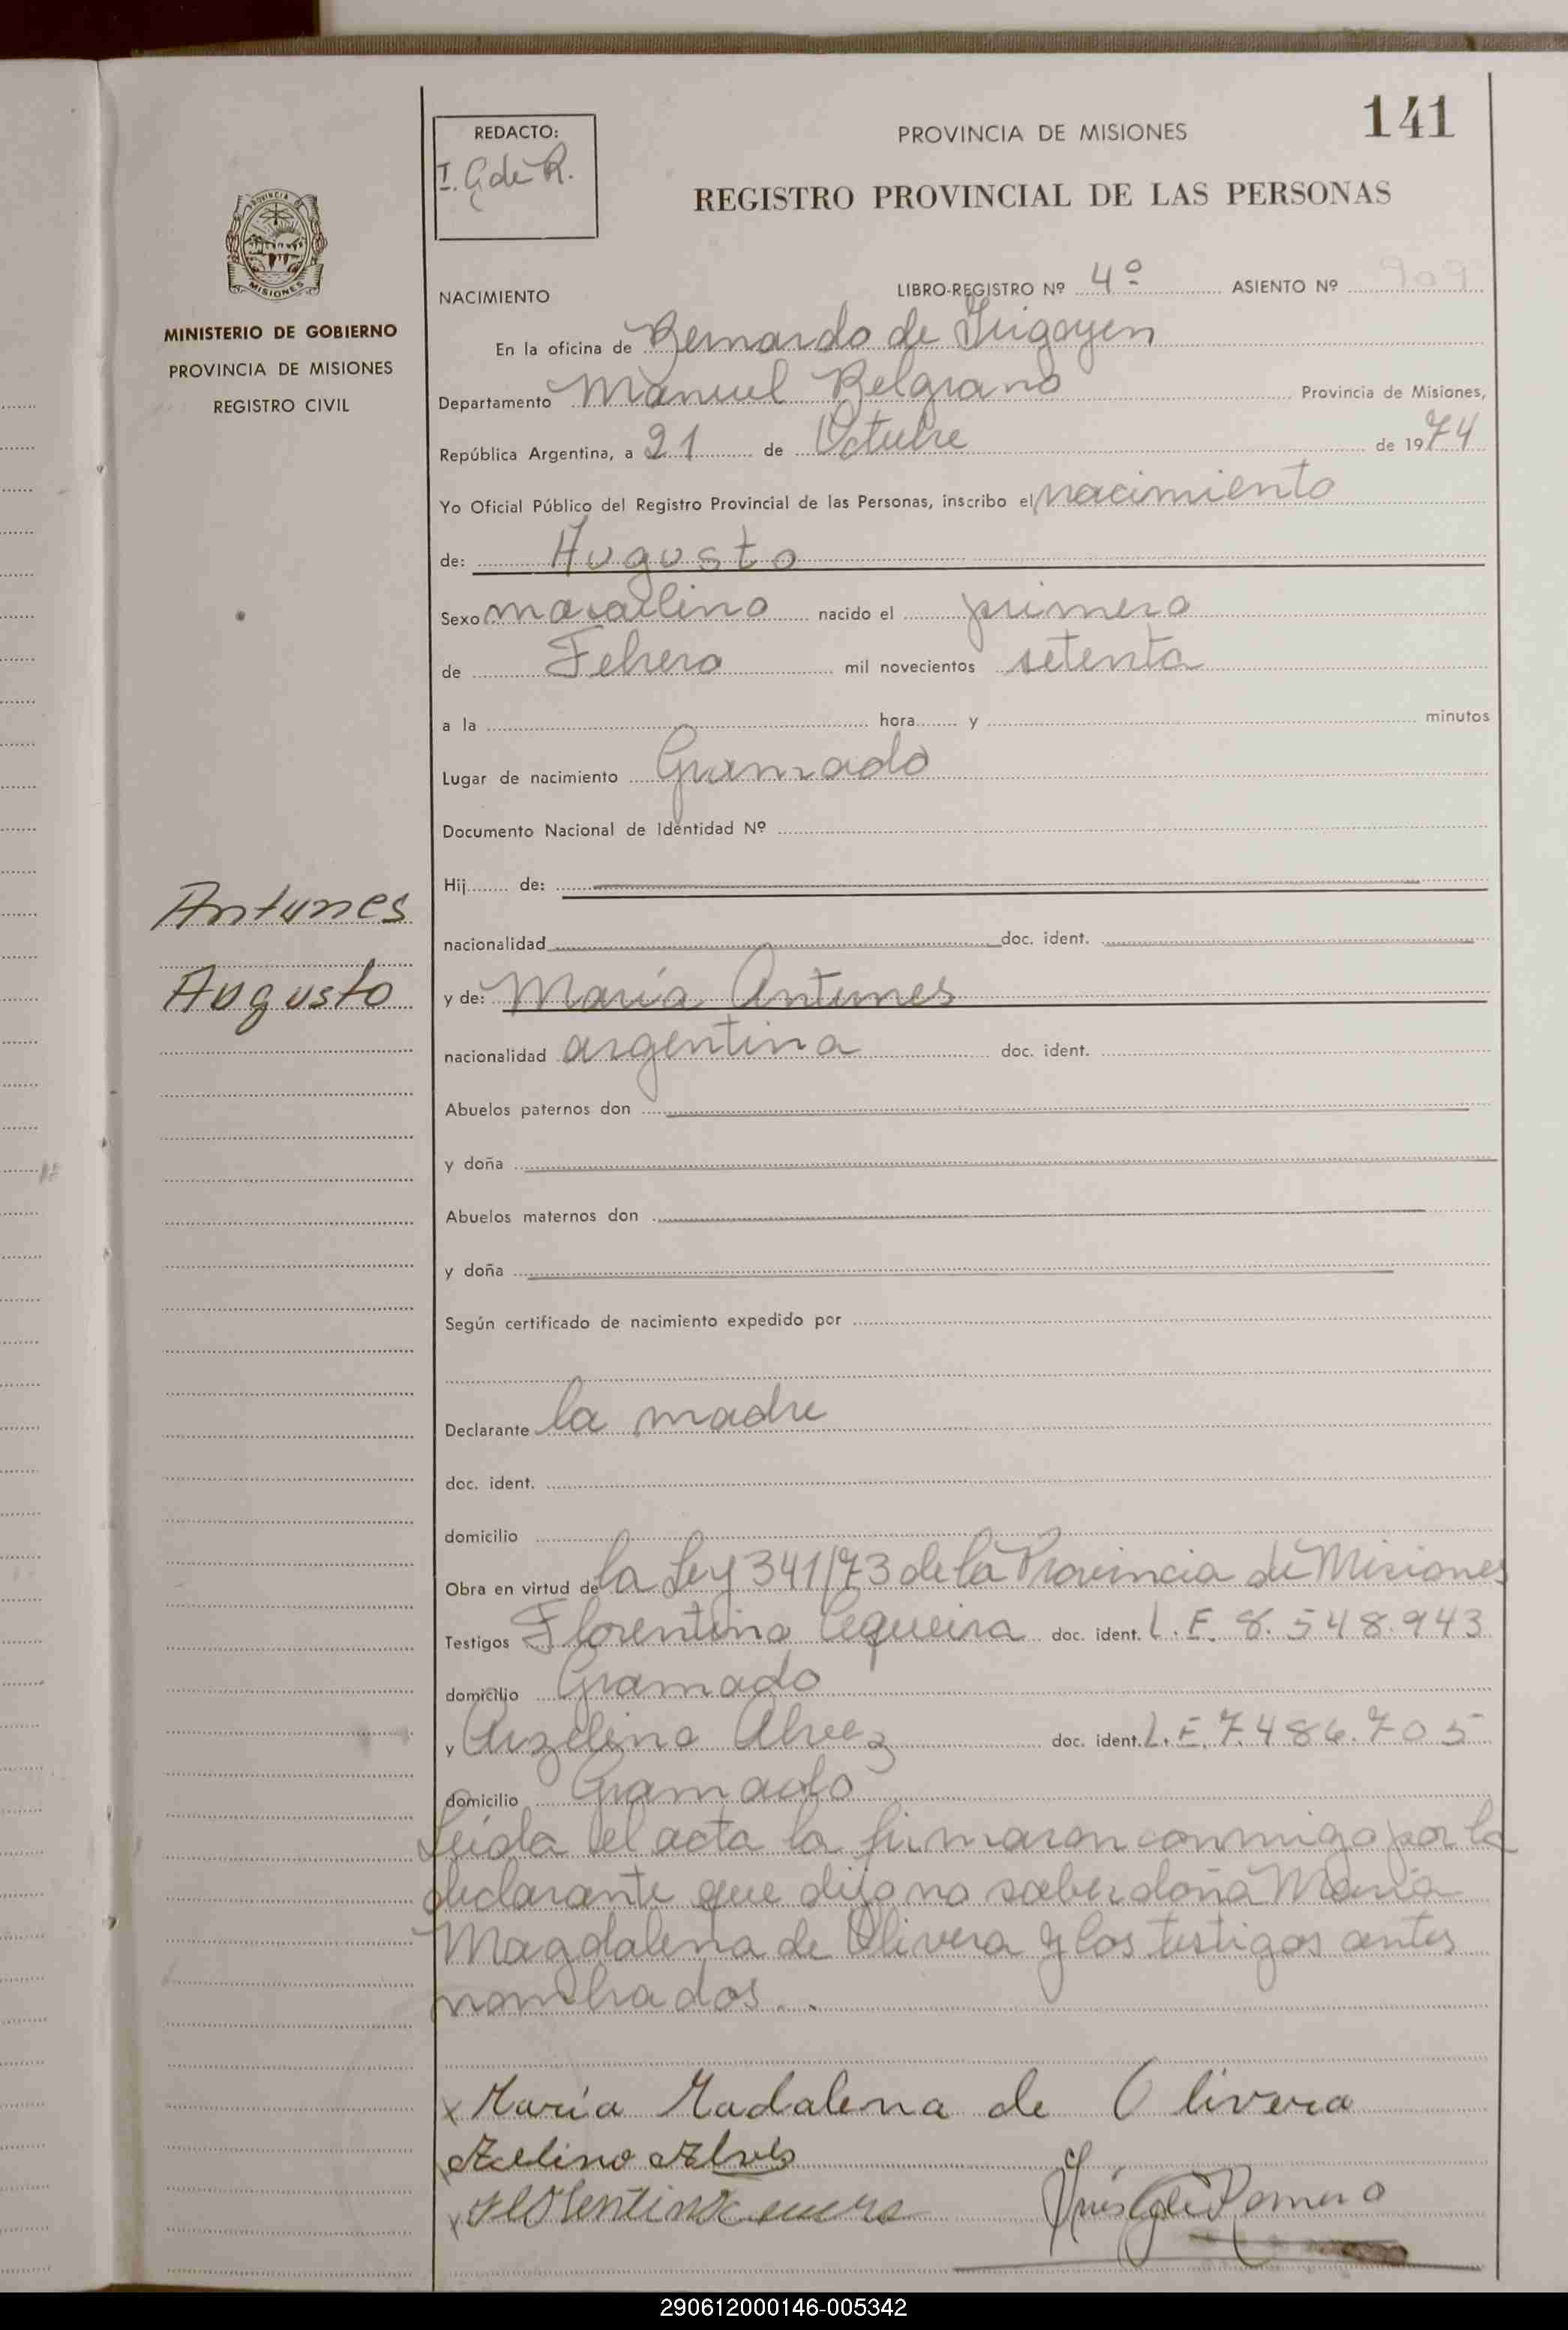 141
REDACTO:
I. G de R.
PROVINCIA DE MISIONES
REGISTRO PROVINCIAL DE LAS PERSONAS
PROVINCIA DE
MISIONES
MINISTERIO DE GOBIERNO
PROVINCIA DE MISIONES
REGISTRO CIVIL
NACIMIENTO
LIBRO-REGISTRO Nº 4º ASIENTO Nº 909
En la oficina de Bernardo de Irigoyen
Departamento Manuel Belgrano Provincia de Misiones,
República Argentina, a 21 de Octubre de 1974
Yo Oficial Público del Registro Provincial de las Personas, inscribo el nacimiento
de: Augusto
Sexo masculino nacido el primero
de Febrero mil novecientos setenta
a la hora y minutos
Lugar de nacimiento Gramado
Documento Nacional de Identidad Nº
Hij de:
Antunes
nacionalidad doc. ident.
Augusto
y de: María Antunes
nacionalidad argentina doc. ident.
Abuelos paternos don
y doña
Abuelos maternos don
y doña
Según certificado de nacimiento expedido por
Declarante la madre
doc. ident.
domicilio
Obra en virtud de la Ley 341/73 de la Provincia de Misiones
Testigos Florentino Cequeira doc. ident. L.E. 8.548.943
domicilio Gramado
y Alvez doc. ident. L.E. 7.486.705
domicilio Gramado
Leída el acta la firmaron conmigo por la
declarante que dijo no saber doña María
Magdalena de Olivera y los testigos antes
nombrados..
x María Madalena de Olivera
Aselino Alves
x Florentino
Inés G de Romero
290612000146-005342